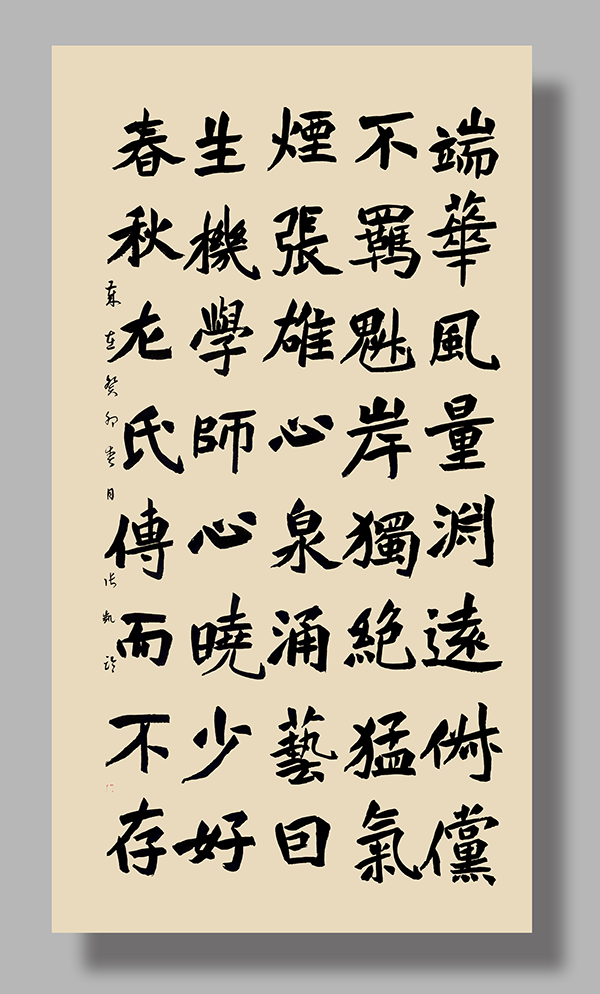 端華風量淵遠俶儻
不羈魁岸獨絕猛氣
煙張雄心泉涌藝回
生機學師心曉少好
春秋左氏傳而不存
歲在癸卯春月 張凱